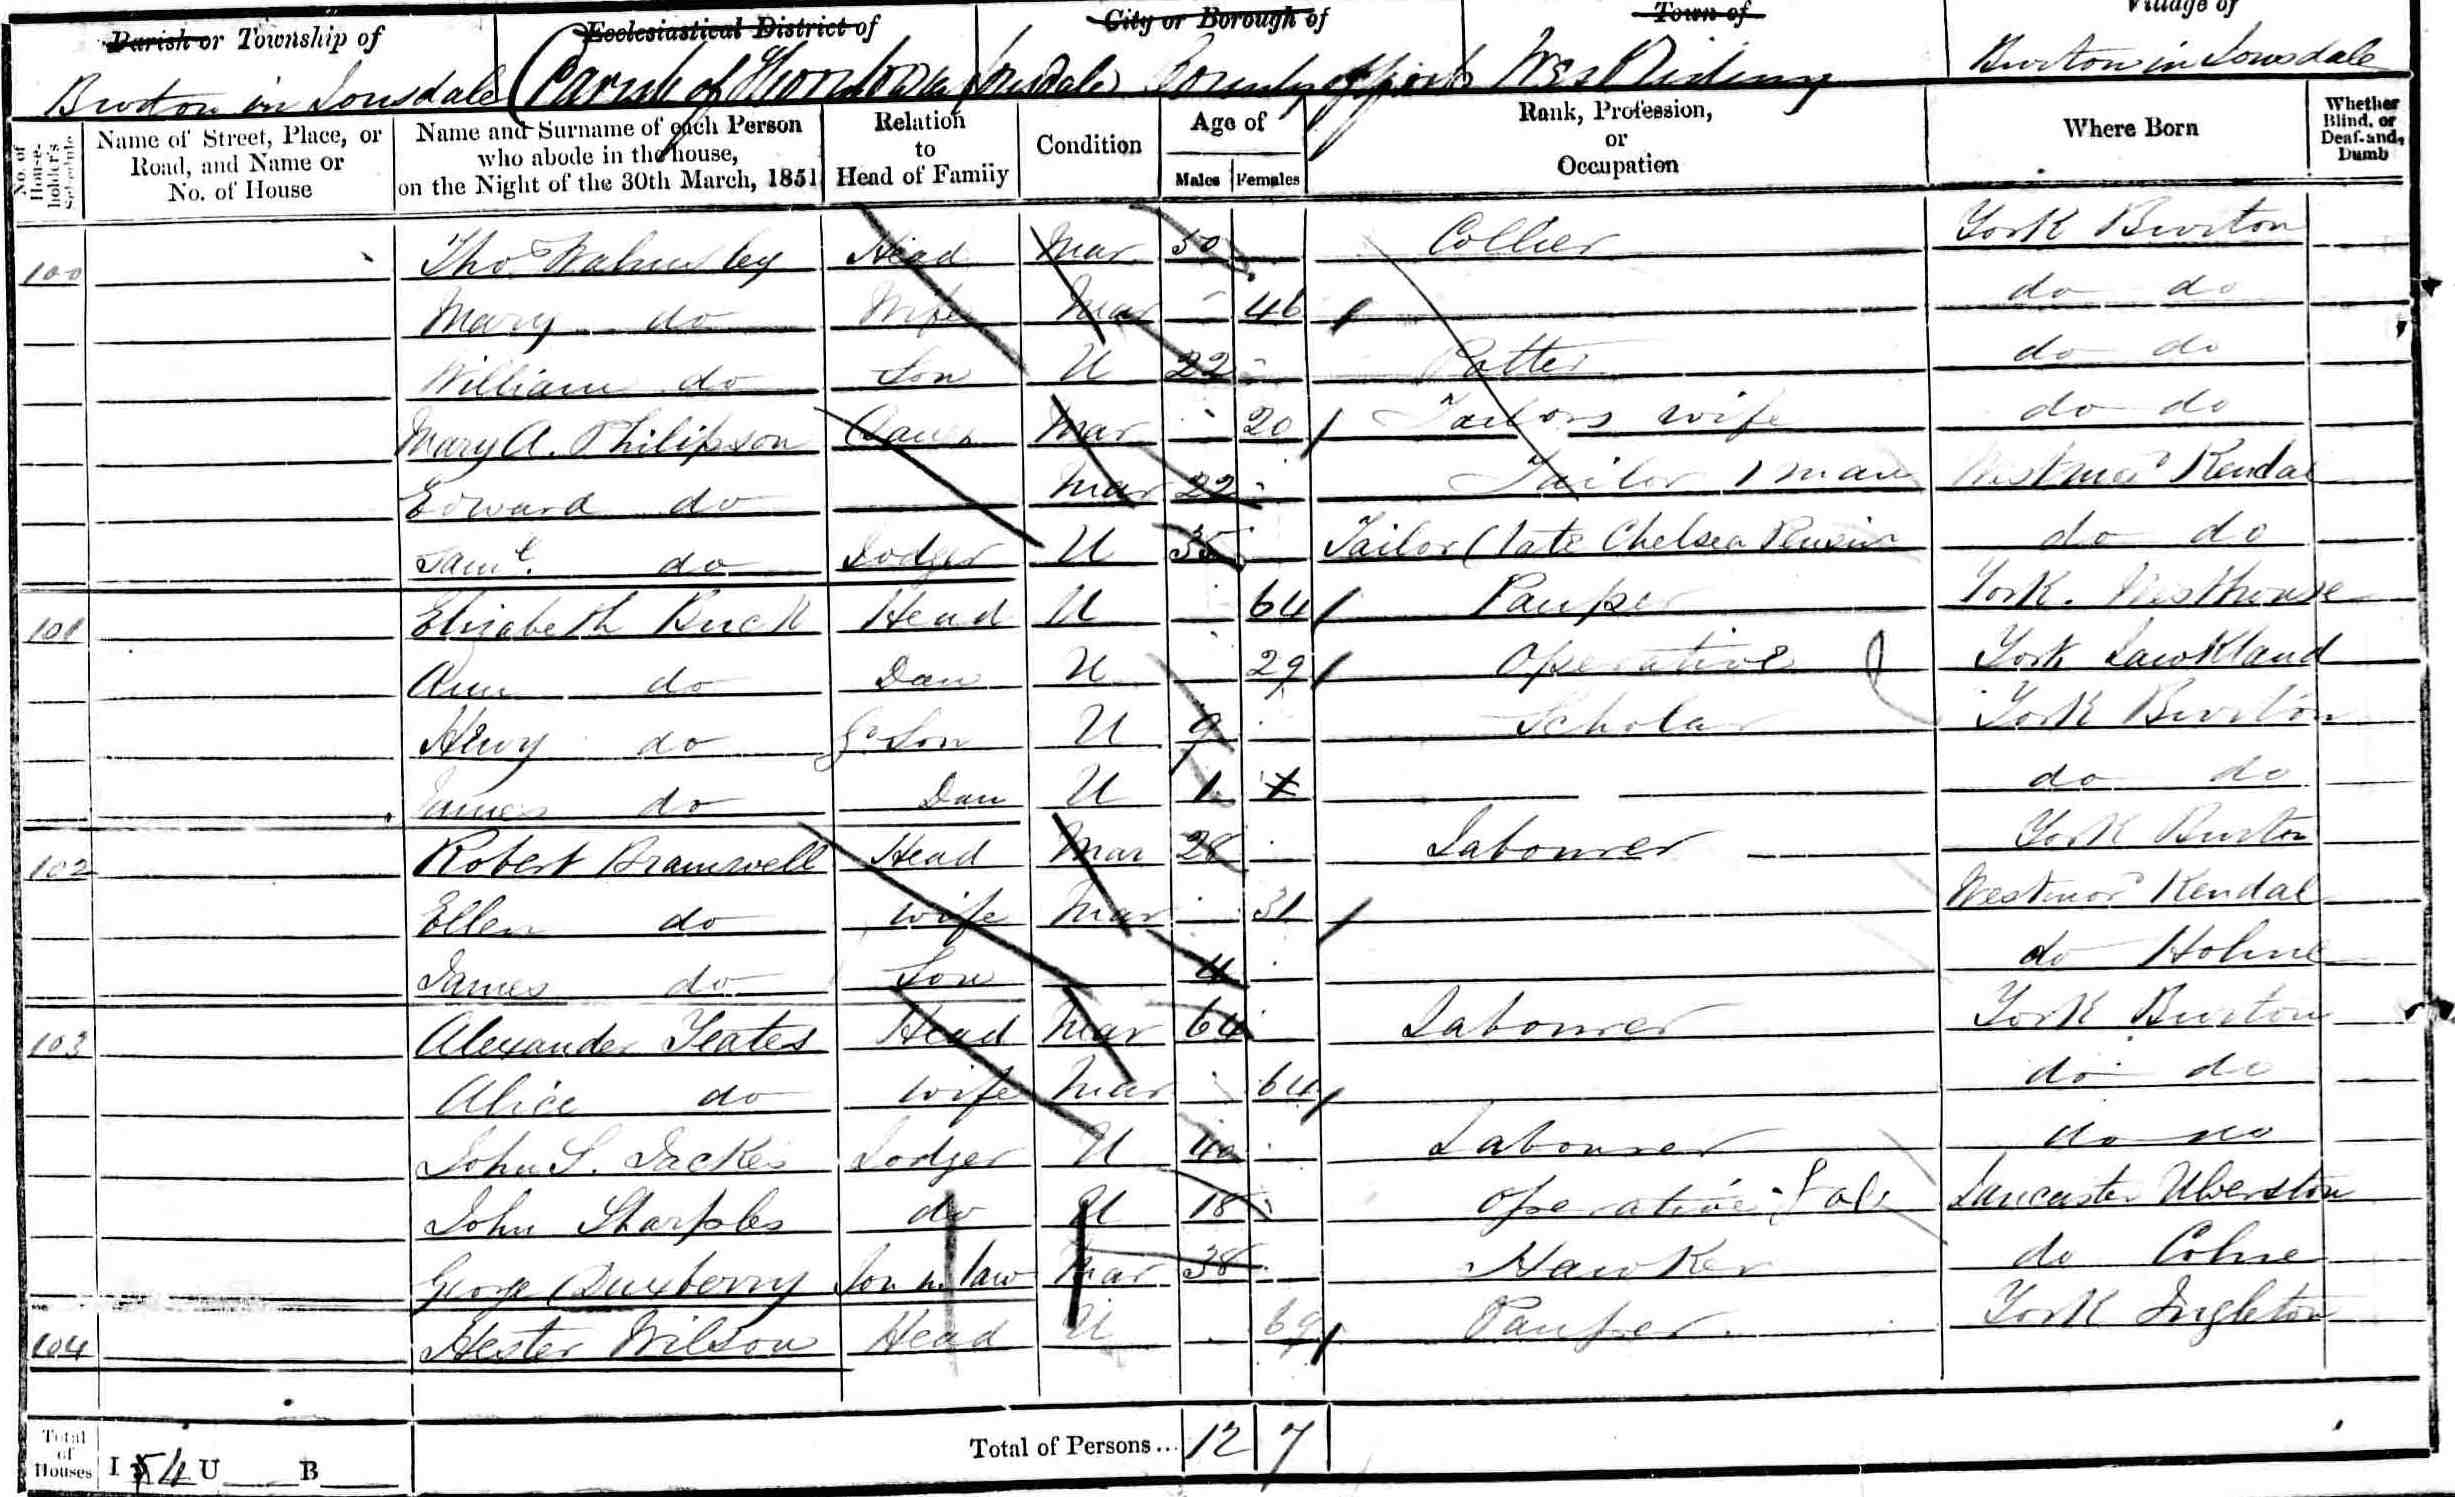 Parish or Township of Ecclesiastical District of City or Borough of Town of Village of
Burton in Lonsdale (Parish of Thornton in Lonsdale County of York West Riding Burton in Lonsdale
No. of House-holder's Schedule Name of Street, Place, or Road, and Name or No. of House Name and Surname of each Person who abode in the house, on the Night of the 30th March, 1851 Relation to Head of Family Condition Age of Males Females Rank, Profession, or Occupation Where Born Whether Blind, or Deaf-and-Dumb
100 Thos Walmsley Head Mar 50 Collier York Burton
Mary do Wife Mar - 46 do do
William do Son U 22 - Potter do do
Mary A. Philipson Daur Mar - 20 Tailors wife do do
Edward do Mar 22 - Tailor 1 man Westmord Kendal
Saml. do Lodger U 35 Tailor (late Chelsea Pension do do
101 Elizabeth Buck Head U 64 Pauper York. Westhouse
Ann do Dau U 29 Operative York Lawkland
Henry do G Son U 9 Scholar York Burton
James do Dau U 1 1 do do
102 Robert Bramwell Head Mar 28 Labourer York Burton
Ellen do wife Mar 31 Westmord Kendal
James do Son 4 do Holme
103 Alexander Yeates Head Mar 64 Labourer York Burton
Alice do wife Mar 64 do do
John S. Jackes Lodger U 40 Labourer do do
John Sharples do U 18 Operative Lancaster Ulverston
George Duxberry Son in law Mar 38 Hawker do Colne
104 Hester Wilson Head U 69 Pauper York Ingleton
Total of Houses I 5 4 U B Total of Persons... 12 7